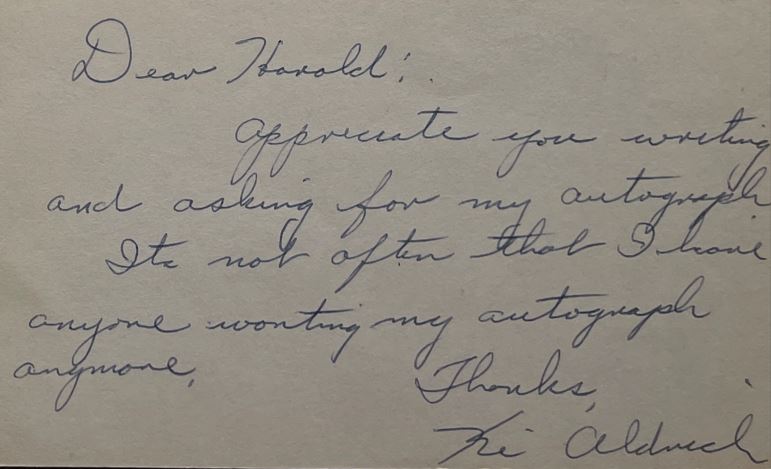 Dear Harold:
Appreciate you writing
and asking for my autograph
Its not often that I have
anyone wanting my autograph
anymore.
Thanks,
Ki Aldrich